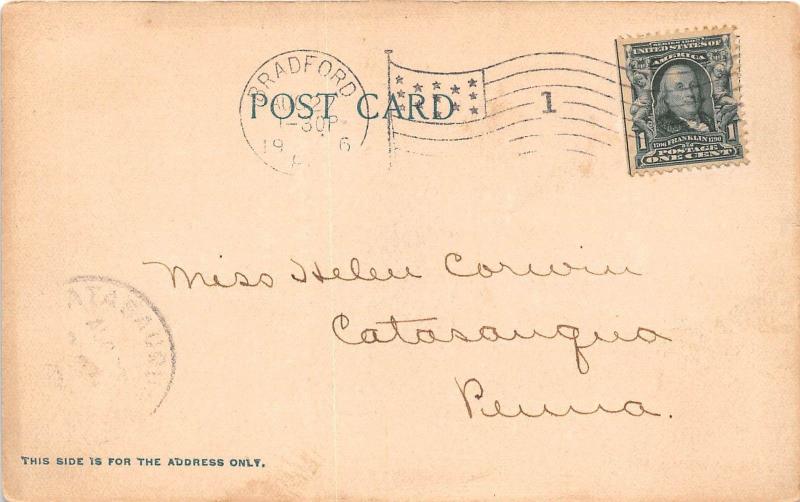 BRADFORD
1-30P
19 6
POST CARD
1
SERIES 1902
UNITED STATES OF
AMERICA
1 1
1706 FRANKLIN 1790
POSTAGE
ONE CENT
Miss Helen Corwin
Catasauqua
Penna.
THIS SIDE IS FOR THE ADDRESS ONLY.